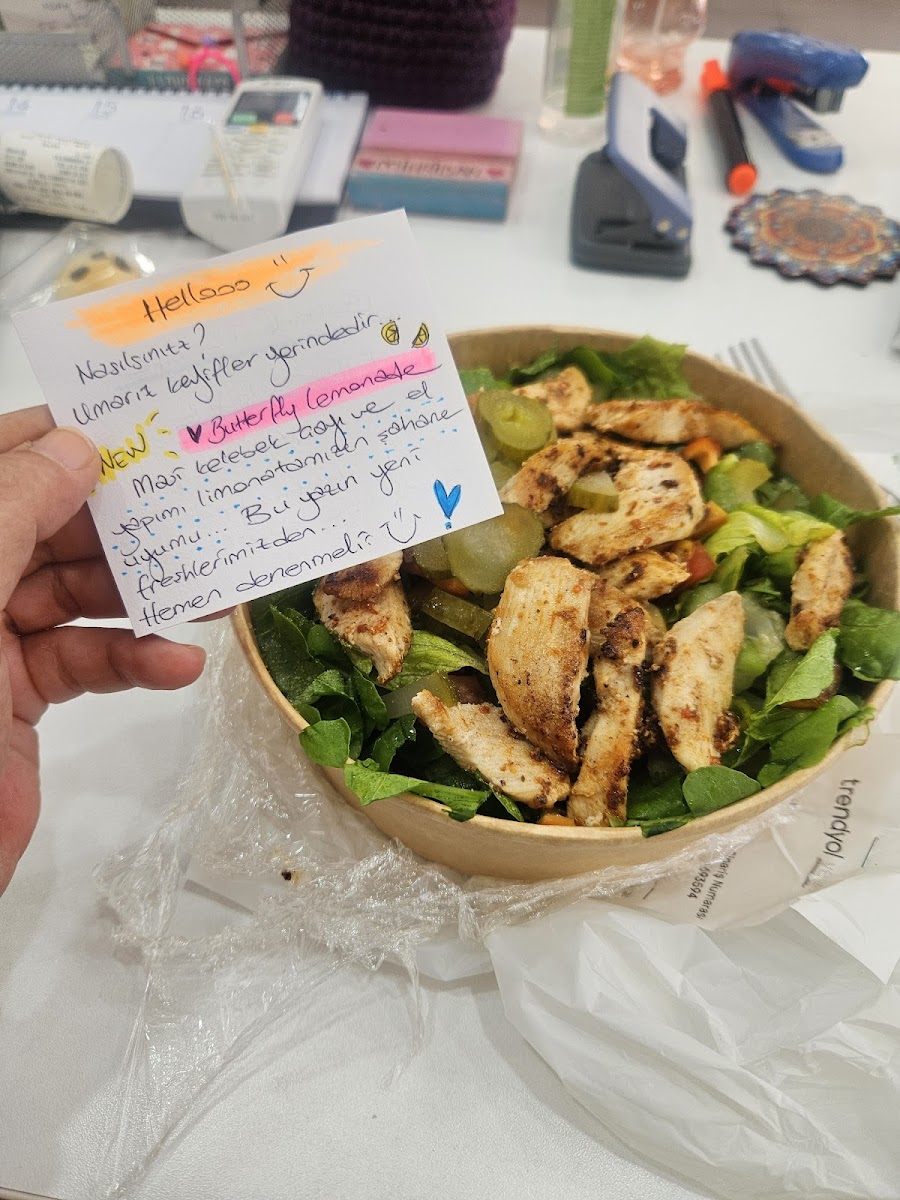 Hellooo
Nasılsınız?
Umarız keyifler yerindedir...
NEW
♥ Butterfly Lemonade
Mavi kelebek çayı ve el
yapımı limonatamızın şahane
uyumu... Bu yazın yeni
freshlerimizden...
Hemen denenmeli!
trendyol
Sipariş Numarası